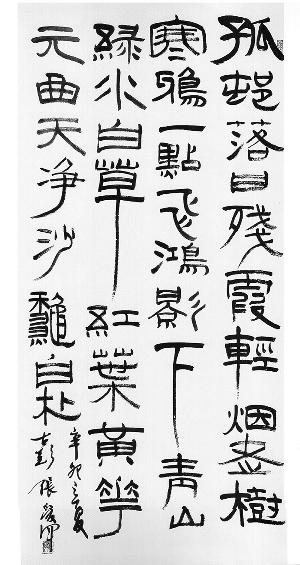 孤邨落日殘霞輕烟老樹
寒鴉一點飞鴻影下青山
綠水白草紅葉黃花
元曲天净沙龝白朴
辛卯之夏
古彭張